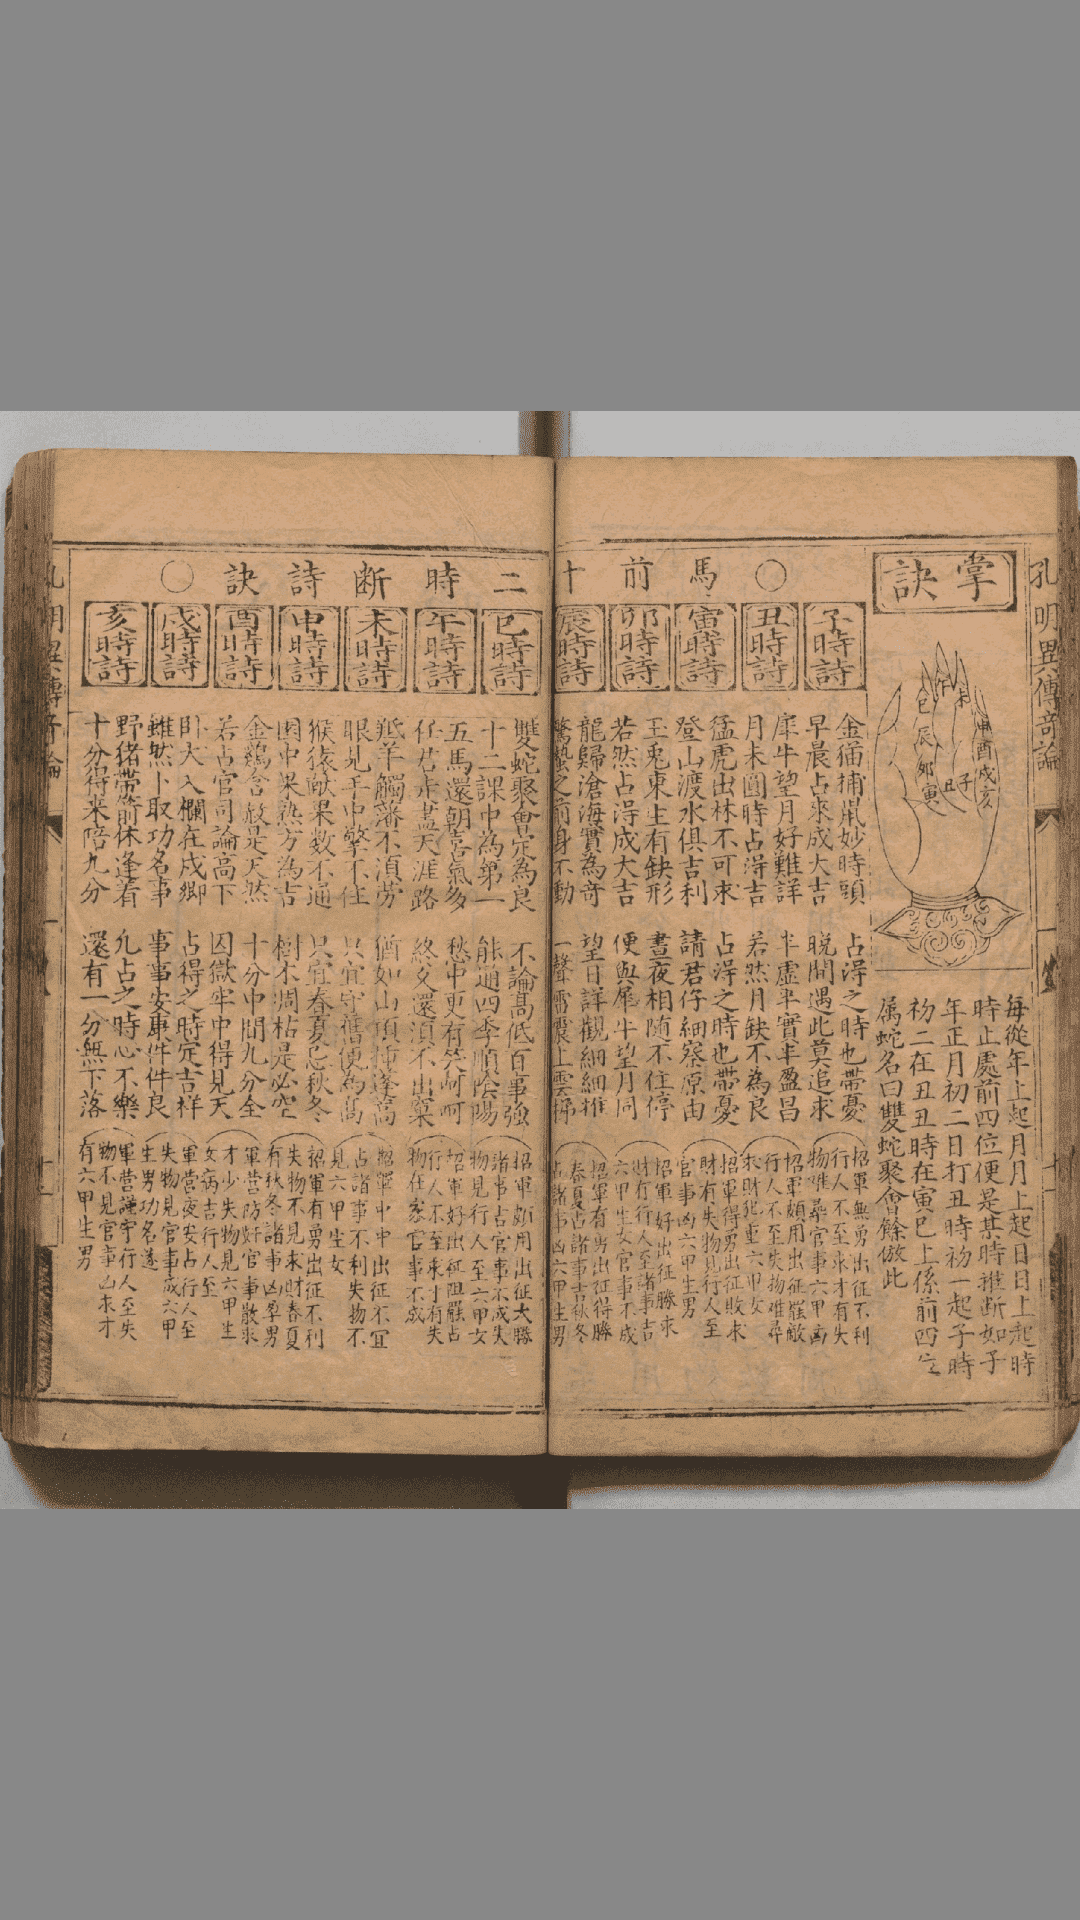 孔明異傳竒論
掌訣
巳 午 未 申
辰 酉
卯 戌
寅 丑 子 亥
每從年上起月月上起日日上起時
時止處前四位便是某時推断如子
年正月初二日打丑時初一起子時
初二在丑丑時在寅巳上係前四位
属蛇名曰雙蛇聚會餘倣此
○馬前十
子時詩
金猫捕鼠妙時頭 占得之時也帶憂
早晨占來成大吉 晚間遇此莫追求
招軍無勇出征不利
行人不至求才有失
物难尋官事六甲凶
丑時詩
犀牛望月好難詳 半虛半實半盈昌
月未圓時占得吉 若然月缺不為良
招軍頗用出征罷敵
行人不至失物难尋
求財犯重六甲女
寅時詩
猛虎出林不可求 占得之時也帶憂
登山渡水俱吉利 請君仔細察原由
招軍得勇出征敗求
財有失物見行人至
官事凶六甲生男
卯時詩
玉兎東生有缺形 晝夜相随不住停
若然占得成大吉 便與犀牛望月同
招軍好出征勝求
財有行人至諸事吉
六甲生女官事不成
辰時詩
龍歸滄海實為竒 望日詳觀細細推
驚蟄之前身不動 一聲雷震上雲梯
招軍有勇出征得勝
春夏占諸事吉秋冬
占諸事凶六甲生男
二時断詩訣○
巳時詩
雙蛇聚會定為良 不論高低百事強
十二課中為第一 能通四季順陰陽
招軍頗用出征大勝
諸事占官事不成失
物見行人至六甲女
午時詩
五馬還朝喜氣多 愁中更有笑呵呵
任君走盡天涯路 終久還須不出窠
招軍好出征阻罷占
行人不至求才有失
物在家官事不成
未時詩
羝羊觸藩不須劳 猶如山頂
眼見手中擎不住 只宜守舊便為高
招軍中中出征不宜
占諸事不利失物不
見六甲生女
申時詩
猴猿献果数不通 只宜春夏忌秋冬
園中果熟方為吉 樹木凋枯是必空
招軍有勇出征不利
失物不見求財春夏
有秋冬諸事凶孕男
酉時詩
金鷄含赦是天然 十分中間九分全
若占官司論高下 囚獄牢中得見天
軍营防奸官事散求
才少失物見六甲生
女病吉行人至
戌時詩
卧犬入欄在戌鄉 占得之時定吉祥
雖然卜取功名事 事事安康件件良
軍营夜安占行人至
失物見官事成六甲
生男功名遂
亥時詩
野猪帶箭休逢着 凢占之時心不樂
十分得来陪九分 還有一分無下落
軍营謹守行人至失
物不見官事凶求才
有六甲生男